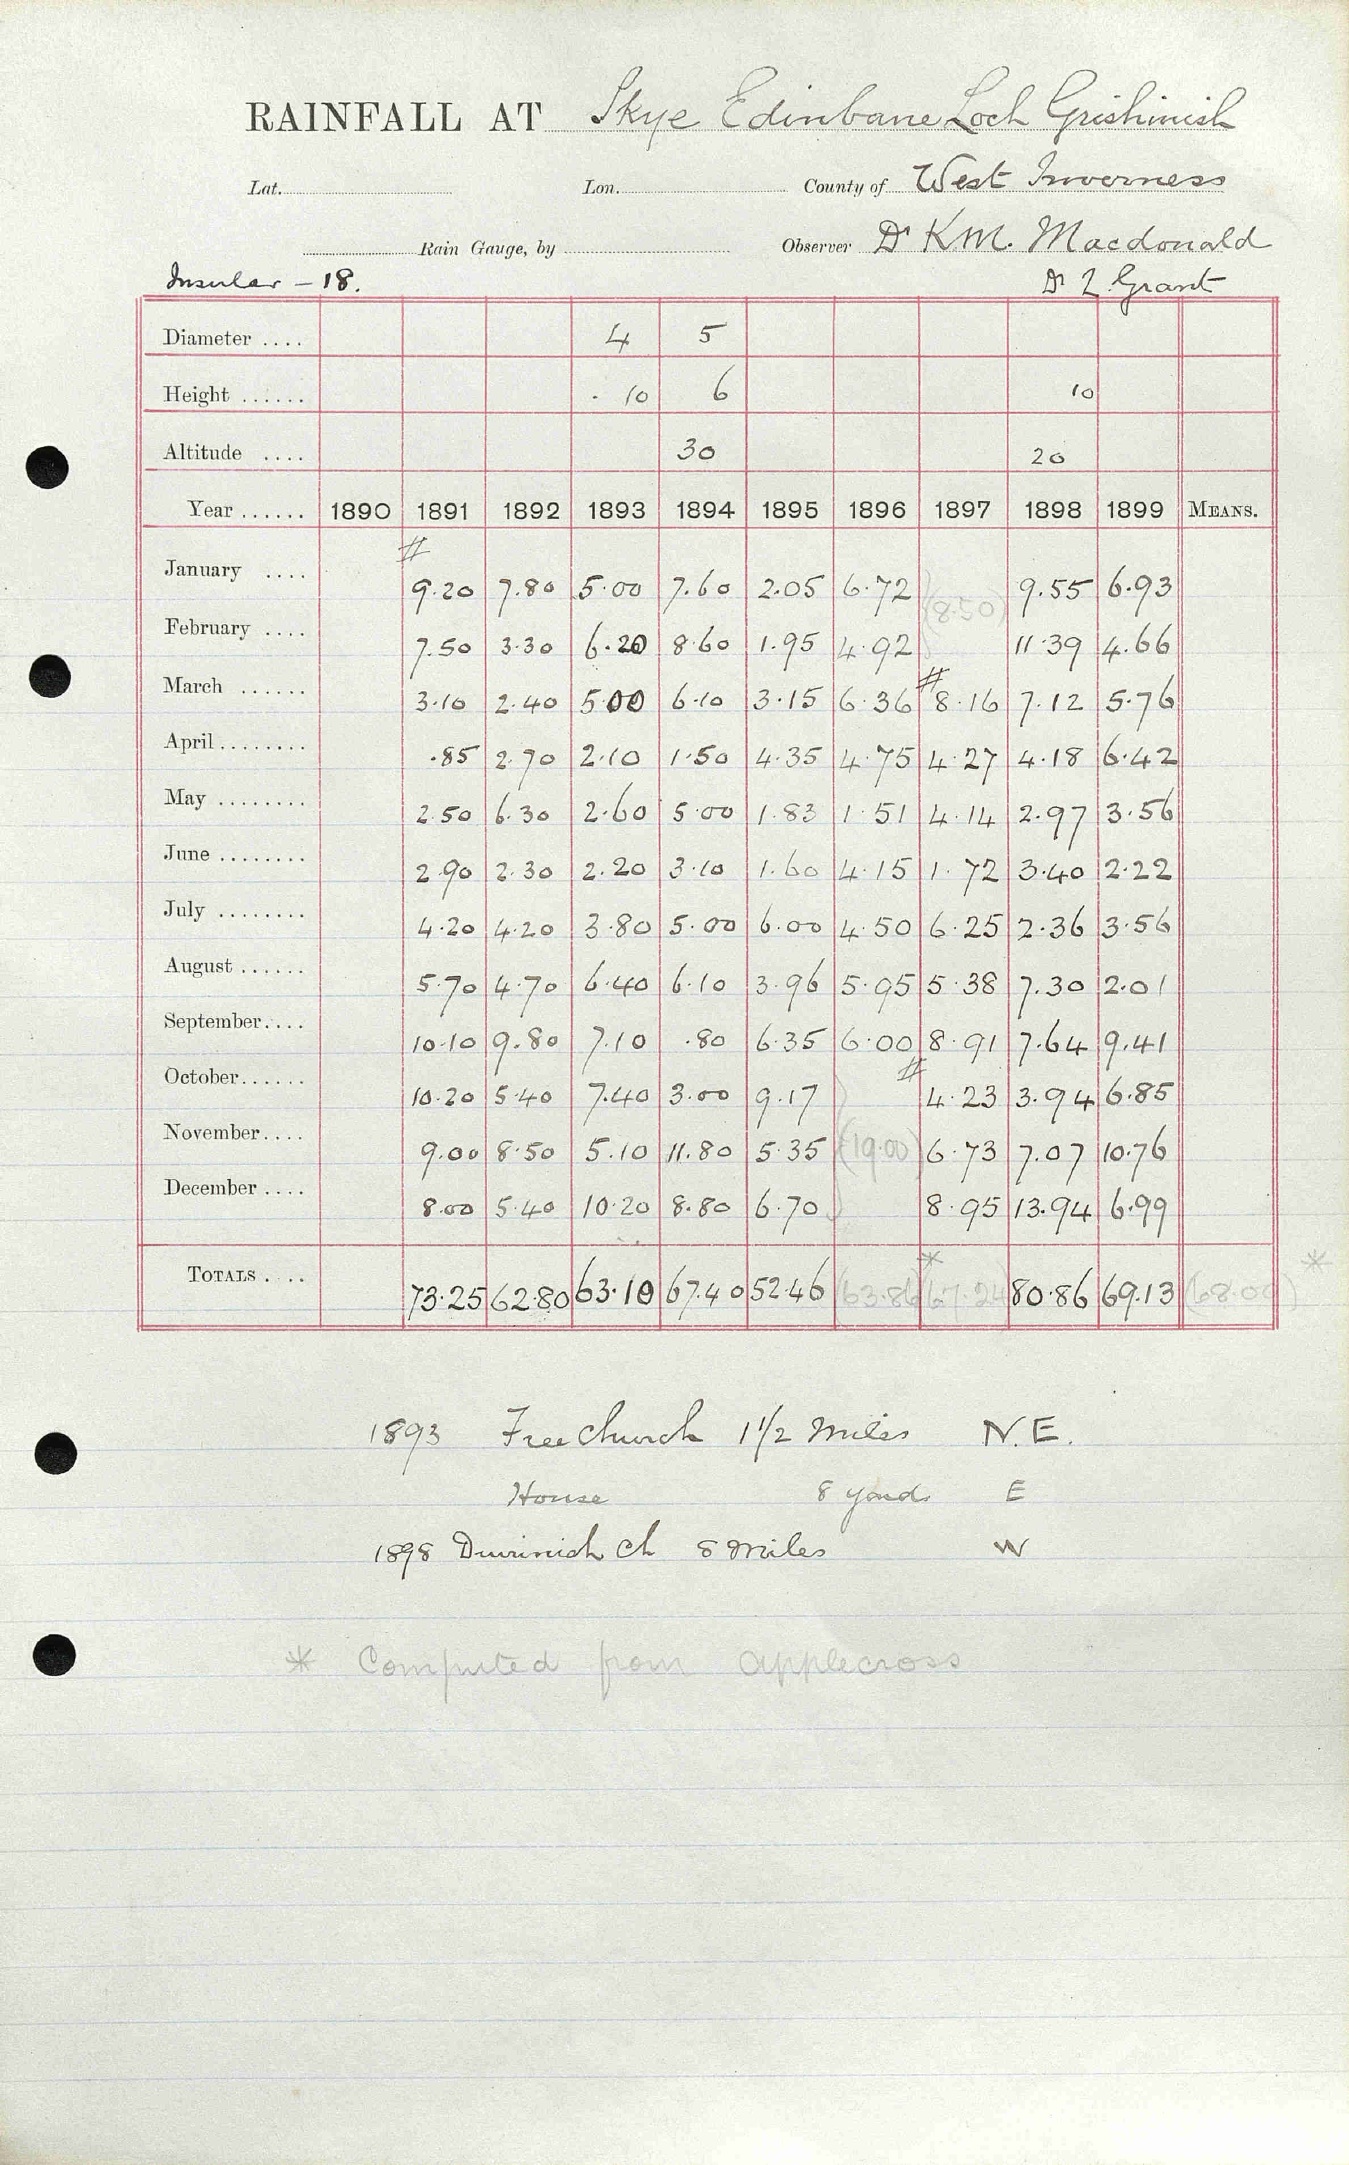 RAINFALL AT Skye Edinbane Loch Grishinish
Lat. Lon. County of West Inverness
Rain Gauge, by Observer Dr K.M. Macdonald
Insular – 18. Dr L. Grant
Diameter .... 4 5
Height ...... 10 6 10
Altitude .... 30 20
Year ...... 1890 1891 1892 1893 1894 1895 1896 1897 1898 1899 MEANS.
#
January .... 9.20 7.80 5.00 7.60 2.05 6.72 9.55 6.93
(8.50)
February .... 7.50 3.30 6.20 8.60 1.95 4.92 11.39 4.66
March ...... 3.10 2.40 5.00 6.10 3.15 6.36 # 8.16 7.12 5.76
April ........ .85 2.70 2.10 1.50 4.35 4.75 4.27 4.18 6.42
May ........ 2.50 6.30 2.60 5.00 1.83 1.51 4.14 2.97 3.56
June ........ 2.90 2.30 2.20 3.10 1.60 4.15 1.72 3.40 2.22
July ........ 4.20 4.20 3.80 5.00 6.00 4.50 6.25 2.36 3.56
August ...... 5.70 4.70 6.40 6.10 3.96 5.95 5.38 7.30 2.01
September.... 10.10 9.80 7.10 .80 6.35 6.00 8.91 7.64 9.41
October...... 10.20 5.40 7.40 3.00 9.17 # 4.23 3.94 6.85
November.... 9.00 8.50 5.10 11.80 5.35 (19.00) 6.73 7.07 10.76
December .... 8.00 5.40 10.20 8.80 6.70 8.95 13.94 6.99
* *
TOTALS .... 73.25 62.80 63.10 67.40 52.46 (63.86) (67.24) 80.86 69.13 (68.00)
1893 Free Church 1 1/2 Miles N.E.
House 8 yards E
1898 Duirinish Ch 8 Miles W
* Computed from Applecross